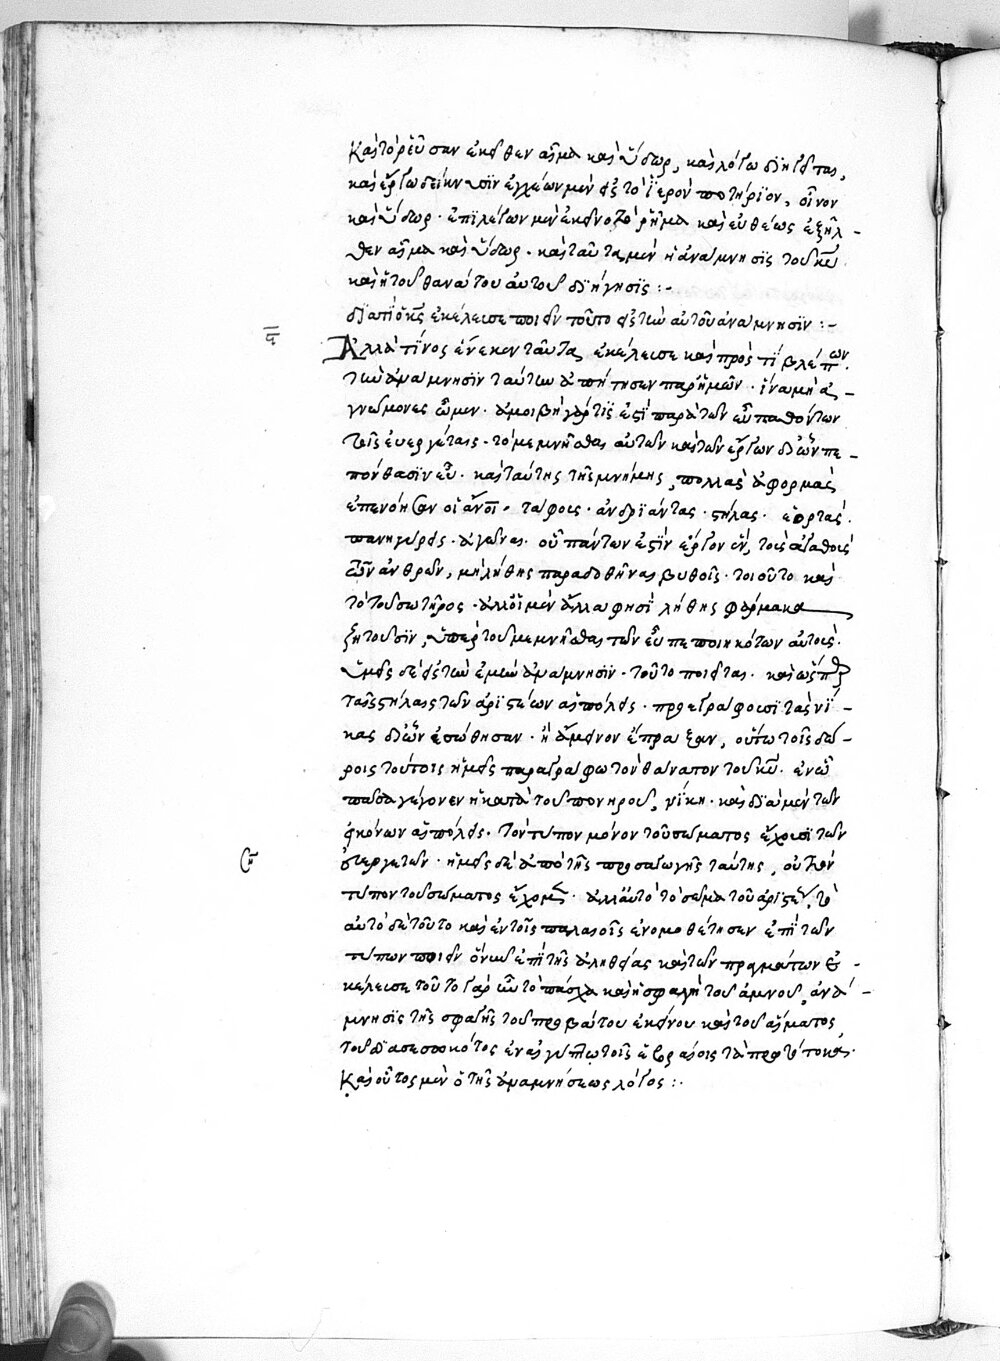 καὶ τὸ ῥεῦσαν ἐκεῖθεν αἷμα καὶ ὕδωρ, καὶ λόγω διηγεῖται,
καὶ ἔργω δείκνυσϊν ἐγχέων μὲν εἰς τὸ ϊερὸν ποτήριον, οἶνον
καὶ ὕδωρ· ἐπϊλέγων μὲν ἐκεῖνο τὸ ῥῆμα καὶ εὐθέως ἐξῆλ-
θεν αἷμα καὶ ὕδωρ· καὶ ταῦτα μὲν ἡ ἀνάμνησϊς τοῦ κυ
καὶ ἡ τοῦ θανάτου αὐτοῦ διήγησϊς :-
διατί ὁ κς ἐκέλευσε ποιεῖν τοῦτο εἰς τὴν αὐτοῦ ἀνάμνησϊν :-
θ
Ἀλλὰ τίνος ἕνεκεν ταῦτα ἐκέλευσε καὶ πρὸς τί βλέπων
τὴν ἀνάμνησϊν ταύτην ἀπήτησεν παρ' ἡμῶν· ἵνα μὴ ἀ-
γνώμονες ὦμεν· ἀμοιβὴ γάρ τίς ἐστϊ παρὰ τῶν εὖ παθόντων
τοῖς εὐεργέταις· τὸ μεμνῆσθαι αὐτῶν καὶ τῶν ἔργων δι' ὧν πε-
πόνθασϊν εὖ· καὶ ταύτης τῆς μνήμης, πολλὰς ἀφορμὰς
ἐπενόησαν οἱ ἄνοι· τάφους· ἀνδριάντας· στήλας· ἑορτὰς·
πανηγύρεις· ἀγῶνας· ὧν πάντων ἐστϊν ἔργον ἓν, τοὺς ἀγαθοὺς
τῶν ἀνδρῶν, μὴ λήθης παραδοθῆναι βυθοῖς· τοιοῦτο καὶ
τὸ τοῦ σωτῆρος· ἀλλ' οἱ μὲν ἄλλα φησϊ λήθης φάρμακα
ζητοῦσϊν, ὑπὲρ τοῦ μεμνῆσθαι τῶν εὖ πεποιηκότων αὐτοὺς·
ὑμεῖς δὲ εἰς τὴν ἐμὴν ἀνάμνησϊν· τοῦτο ποιεῖται· καὶ ὥσπερ
ταῖς στήλαις τῶν ἀρϊστέων αἱ πόλεις· προσεγράφουσϊ τὰς νί-
κας δι' ὧν ἐσώθησαν· ἢ ἄμεινον ἔπραξαν, οὕτω τοῖς δώ-
ροις τούτοις ἡμεῖς παραγράφω τὸν θάνατον τοῦ κυ· ἐν ὧ
πᾶσα γέγονεν ἡ κατὰ τοῦ πονηροῦ, νίκη· καὶ διὰ μὲν τῶν
εἰκόνων αἱ πόλεις· τὸν τύπον μόνον τοῦ σώματος ἔχουσϊ τῶν
εὐεργετῶν· ἡμεῖς δὲ ἀπὸ τῆς προσαγωγῆς ταύτης, οὐ τὸν
ση
τύπον τοῦ σώματος ἔχομεν· ἀλλ' αὐτὸ τὸ σῶμα τοῦ ἀρϊστέως· τὸ
αὐτὸ δὲ τοῦτο καὶ ἐν τοῖς παλαιοῖς ἐνομοθέτησεν ἐπὶ τῶν
τύπων ποιεῖν ὃ νῦν ἐπὶ τῆς ἀληθείας καὶ τῶν πραγμάτων ἐ-
κέλευσε τοῦτο γὰρ ἦν τὸ πάσχα καὶ ἡ σφαγὴ τοῦ ἀμνοῦ, ἀνά-
μνησϊς τῆς σφαγῆς τοῦ προβάτου ἐκείνου καὶ τοῦ αἵματος
τοῦ διασεσωκότος ἐν αἰγύπτω τοῖς ἑβραίοις τὰ πρωτότοκα·
καὶ οὗτος μὲν ὁ τῆς ἀναμνήσεως λόγος :·